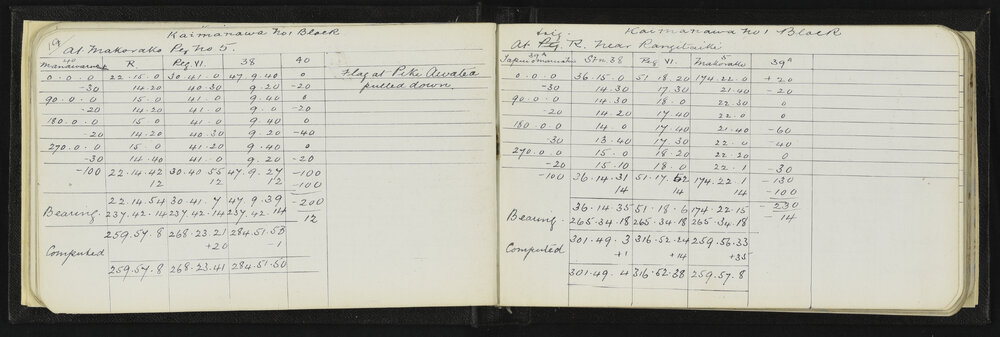 19
Kaimanawa No 1 Block
At Makorako Peg No 5.
40 R Peg VI. 38 40
0.0.0 22.15.0 30.41.0 47.9.40 0 Flag at Pike Awatea
-30 14.20 40.30 9.20 -20 pulled down.
90.0.0 15.0 41.0 9.40 0
-20 14.20 41.0 9.0 -20
180.0.0 15.0 41.0 9.40 0
-20 14.20 40.30 9.20 -40
270.0.0 15.0 41.20 9.40 0
-30 14.40 41.0 9.20 -20
-100 22.14.42 30.40.55 47.9.27 -100
12 12 12 -100
22.14.54 30.41.7 47.9.39 -200
Bearing 237.42.14 237.42.14 237.42.14 12
259.57.8 268.23.21 284.51.53
+20 -1
Computed
259.57.8 268.23.41 284.51.50
Kaimanawa No 1 Block
trig.
At Peg R. Near Rangitaiki
39A Stn 38 Peg VI. 5 Makorako 39A
0.0.0 36.15.0 51.18.20 174.22.0 +20
-30 14.30 17.30 21.40 -20
90.0.0 14.30 18.0 22.30 0
-20 14.20 17.40 22.0 0
180.0.0 14.0 17.40 21.40 -60
-30 13.40 17.30 22.0 -40
270.0.0 15.0 18.20 22.20 0
-20 15.10 18.0 22.1 -30
-100 36.14.31 51.17.52 174.22.1 -130
14 14 14 -100
36.14.35 51.18.6 174.22.15 -230
Bearing. 265.34.18 265.34.18 265.34.18 -14
301.49.3 316.52.24 259.56.33
Computed +1 +14 +35
301.49.4 316.52.38 259.57.8